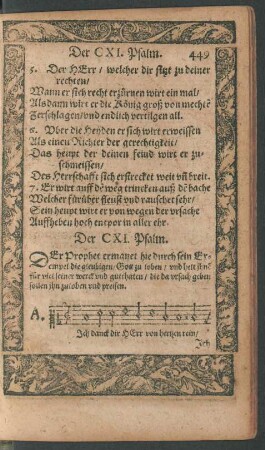 Der CXI. Psalm. 449
5. Der HErr / welcher dir sitzt zu deiner
rechten /
Wann er sich recht erzürnen wirt ein mal /
Als dann wirt er die König groß von mechtē
Zerschlagen / vnd endlich vertilgen all.
6. Vber die Heyden er sich wirt erweissen
Als einen Richter der gerechtigkeit /
Das heupt der deinen feind wirt er zu-
schmeissen /
Des Herrschafft sich erstrecket weit vn̄ breit.
7. Er wirt auff dē weg trincken auß dē bache
Welcher fürüber fleust vnd rauschet sehr /
Sein heupt wirt er von wegen der vrsache
Auffheben hoch entpor in aller ehr.
Der CXI. Psalm.
DEr Prophet ermanet hie durch sein Ex-
empel die gleubigen / Gott zu loben / vnd helt jhnē
für viel seiner werck vnd gutthaten / die da vrsach geben
sollen jhn zu loben vnd preisen.
A.
Ich danck dir HErr von hertzen rein /
Ich